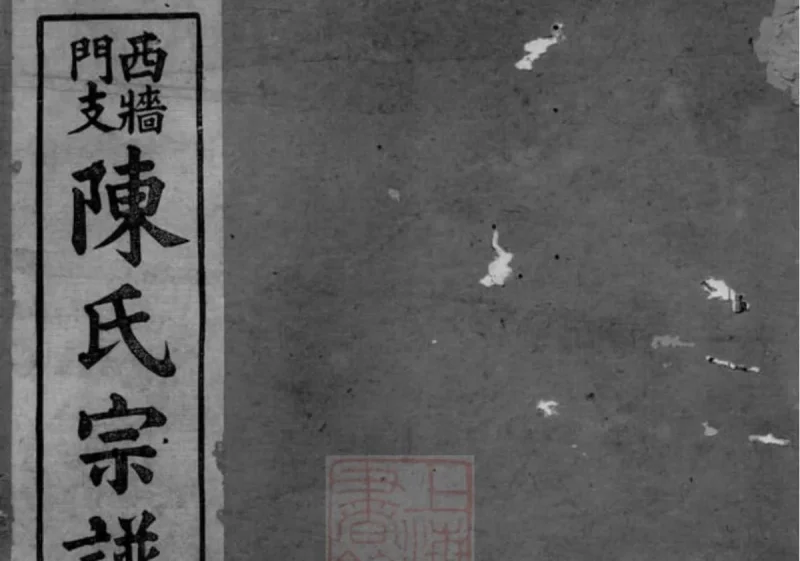 西牆
門支
陳氏宗譜
上海